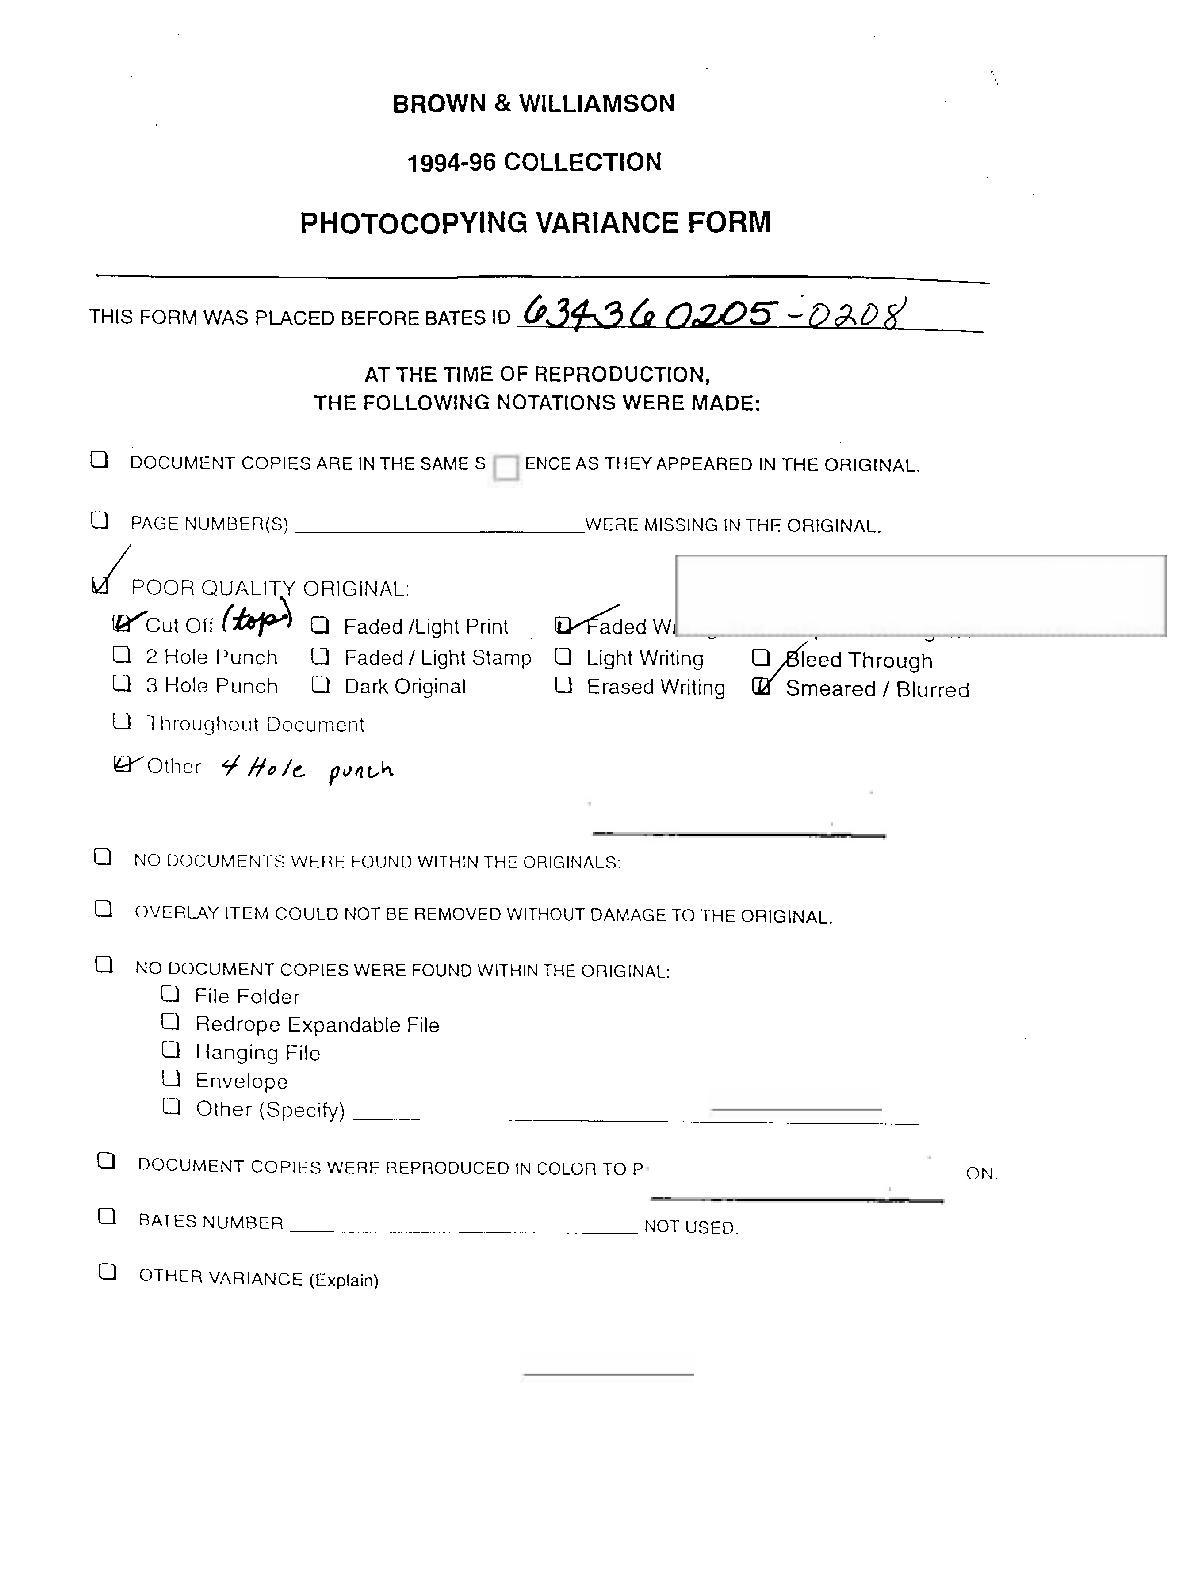 BROWN & WILLIAMSON
1994-96 COLLECTION
PHOTOCOPYING VARIANCE FORM
THIS FORM WAS PLACED BEFORE BATES ID 634360205-0208
AT THE TIME OF REPRODUCTION,
THE FOLLOWING NOTATIONS WERE MADE:
DOCUMENT COPIES ARE IN THE SAME S ENCE AS THEY APPEARED IN THE ORIGINAL.
PAGE NUMBER(S) WERE MISSING IN THE ORIGINAL.
POOR QUALITY ORIGINAL:
Cut Off (top) Faded /Light Print Faded
2 Hole Punch Faded / Light Stamp Light Writing Bleed Through
3 Hole Punch Dark Original Erased Writing Smeared / Blurred
Throughout Document
Other 4 Hole punch
NO DOCUMENTS WERE FOUND WITHIN THE ORIGINALS:
OVERLAY ITEM COULD NOT BE REMOVED WITHOUT DAMAGE TO THE ORIGINAL.
NO DOCUMENT COPIES WERE FOUND WITHIN THE ORIGINAL:
File Folder
Redrope Expandable File
Hanging File
Envelope
Other (Specify)
DOCUMENT COPIES WERE REPRODUCED IN COLOR TO P ON.
BATES NUMBER NOT USED.
OTHER VARIANCE (Explain)